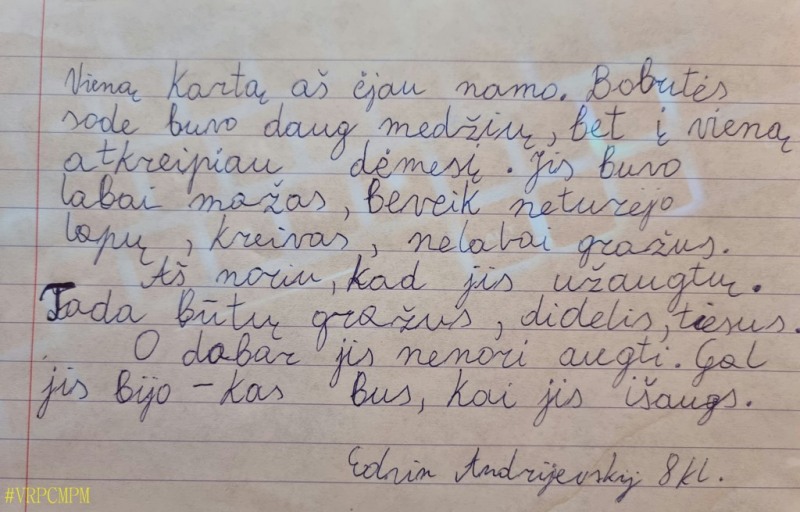 Vieną kartą aš ėjau namo. Bobutės
sode buvo daug medžių, bet į vieną
atkreipiau dėmesį. Jis buvo
labai mažas, beveik neturėjo
lapų, kreivas, nelabai gražus.
Aš noriu, kad jis užaugtų.
Tada būtų gražus, didelis, tiesus.
O dabar jis nenori augti. Gal
jis bijo – kas bus, kai jis išaugs.
Edvin Andrijevskij 8 kl.
#VRPCMPM